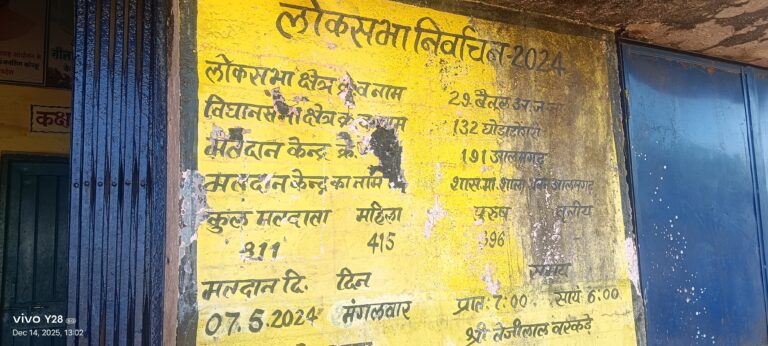 लोकसभा निर्वाचन-2024
लोकसभा क्षेत्र क्र व नाम 29. बैतूल अ.ज.जा
विधानसभा क्षेत्र क्र व नाम 132 घोड़ाडोंगरी
मतदान केन्द्र क्रं. 191 आलमगढ़
मतदान केन्द्र का नाम शास. मा. शाला भवन आलमगढ़
कुल मतदाता महिला पुरुष तृतीय
811 415 396 -
मतदान दि. दिन समय
07.5.2024 मंगलवार प्रात: 7:00 सायं 6:00
श्री तेजीलाल वरकड़े
कक्ष
vivo Y28
Dec 14, 2025, 13:02